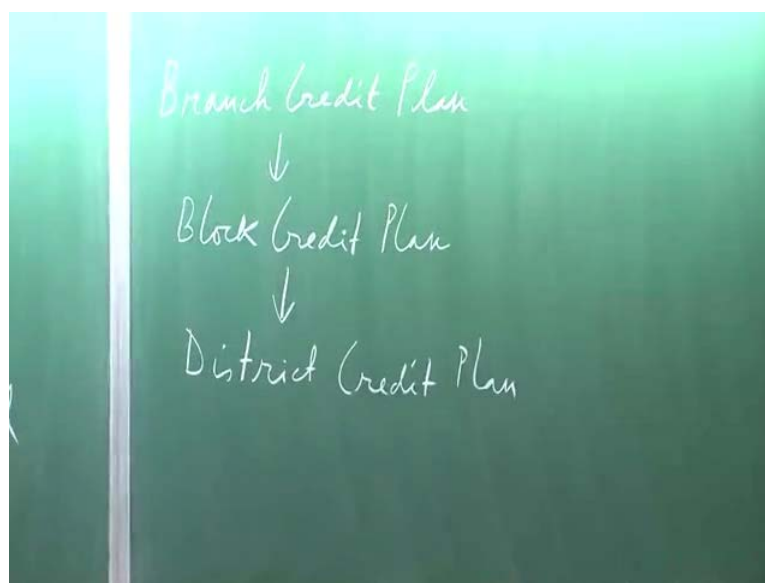 Branch Credit Plan
↓
Block Credit Plan
↓
District Credit Plan